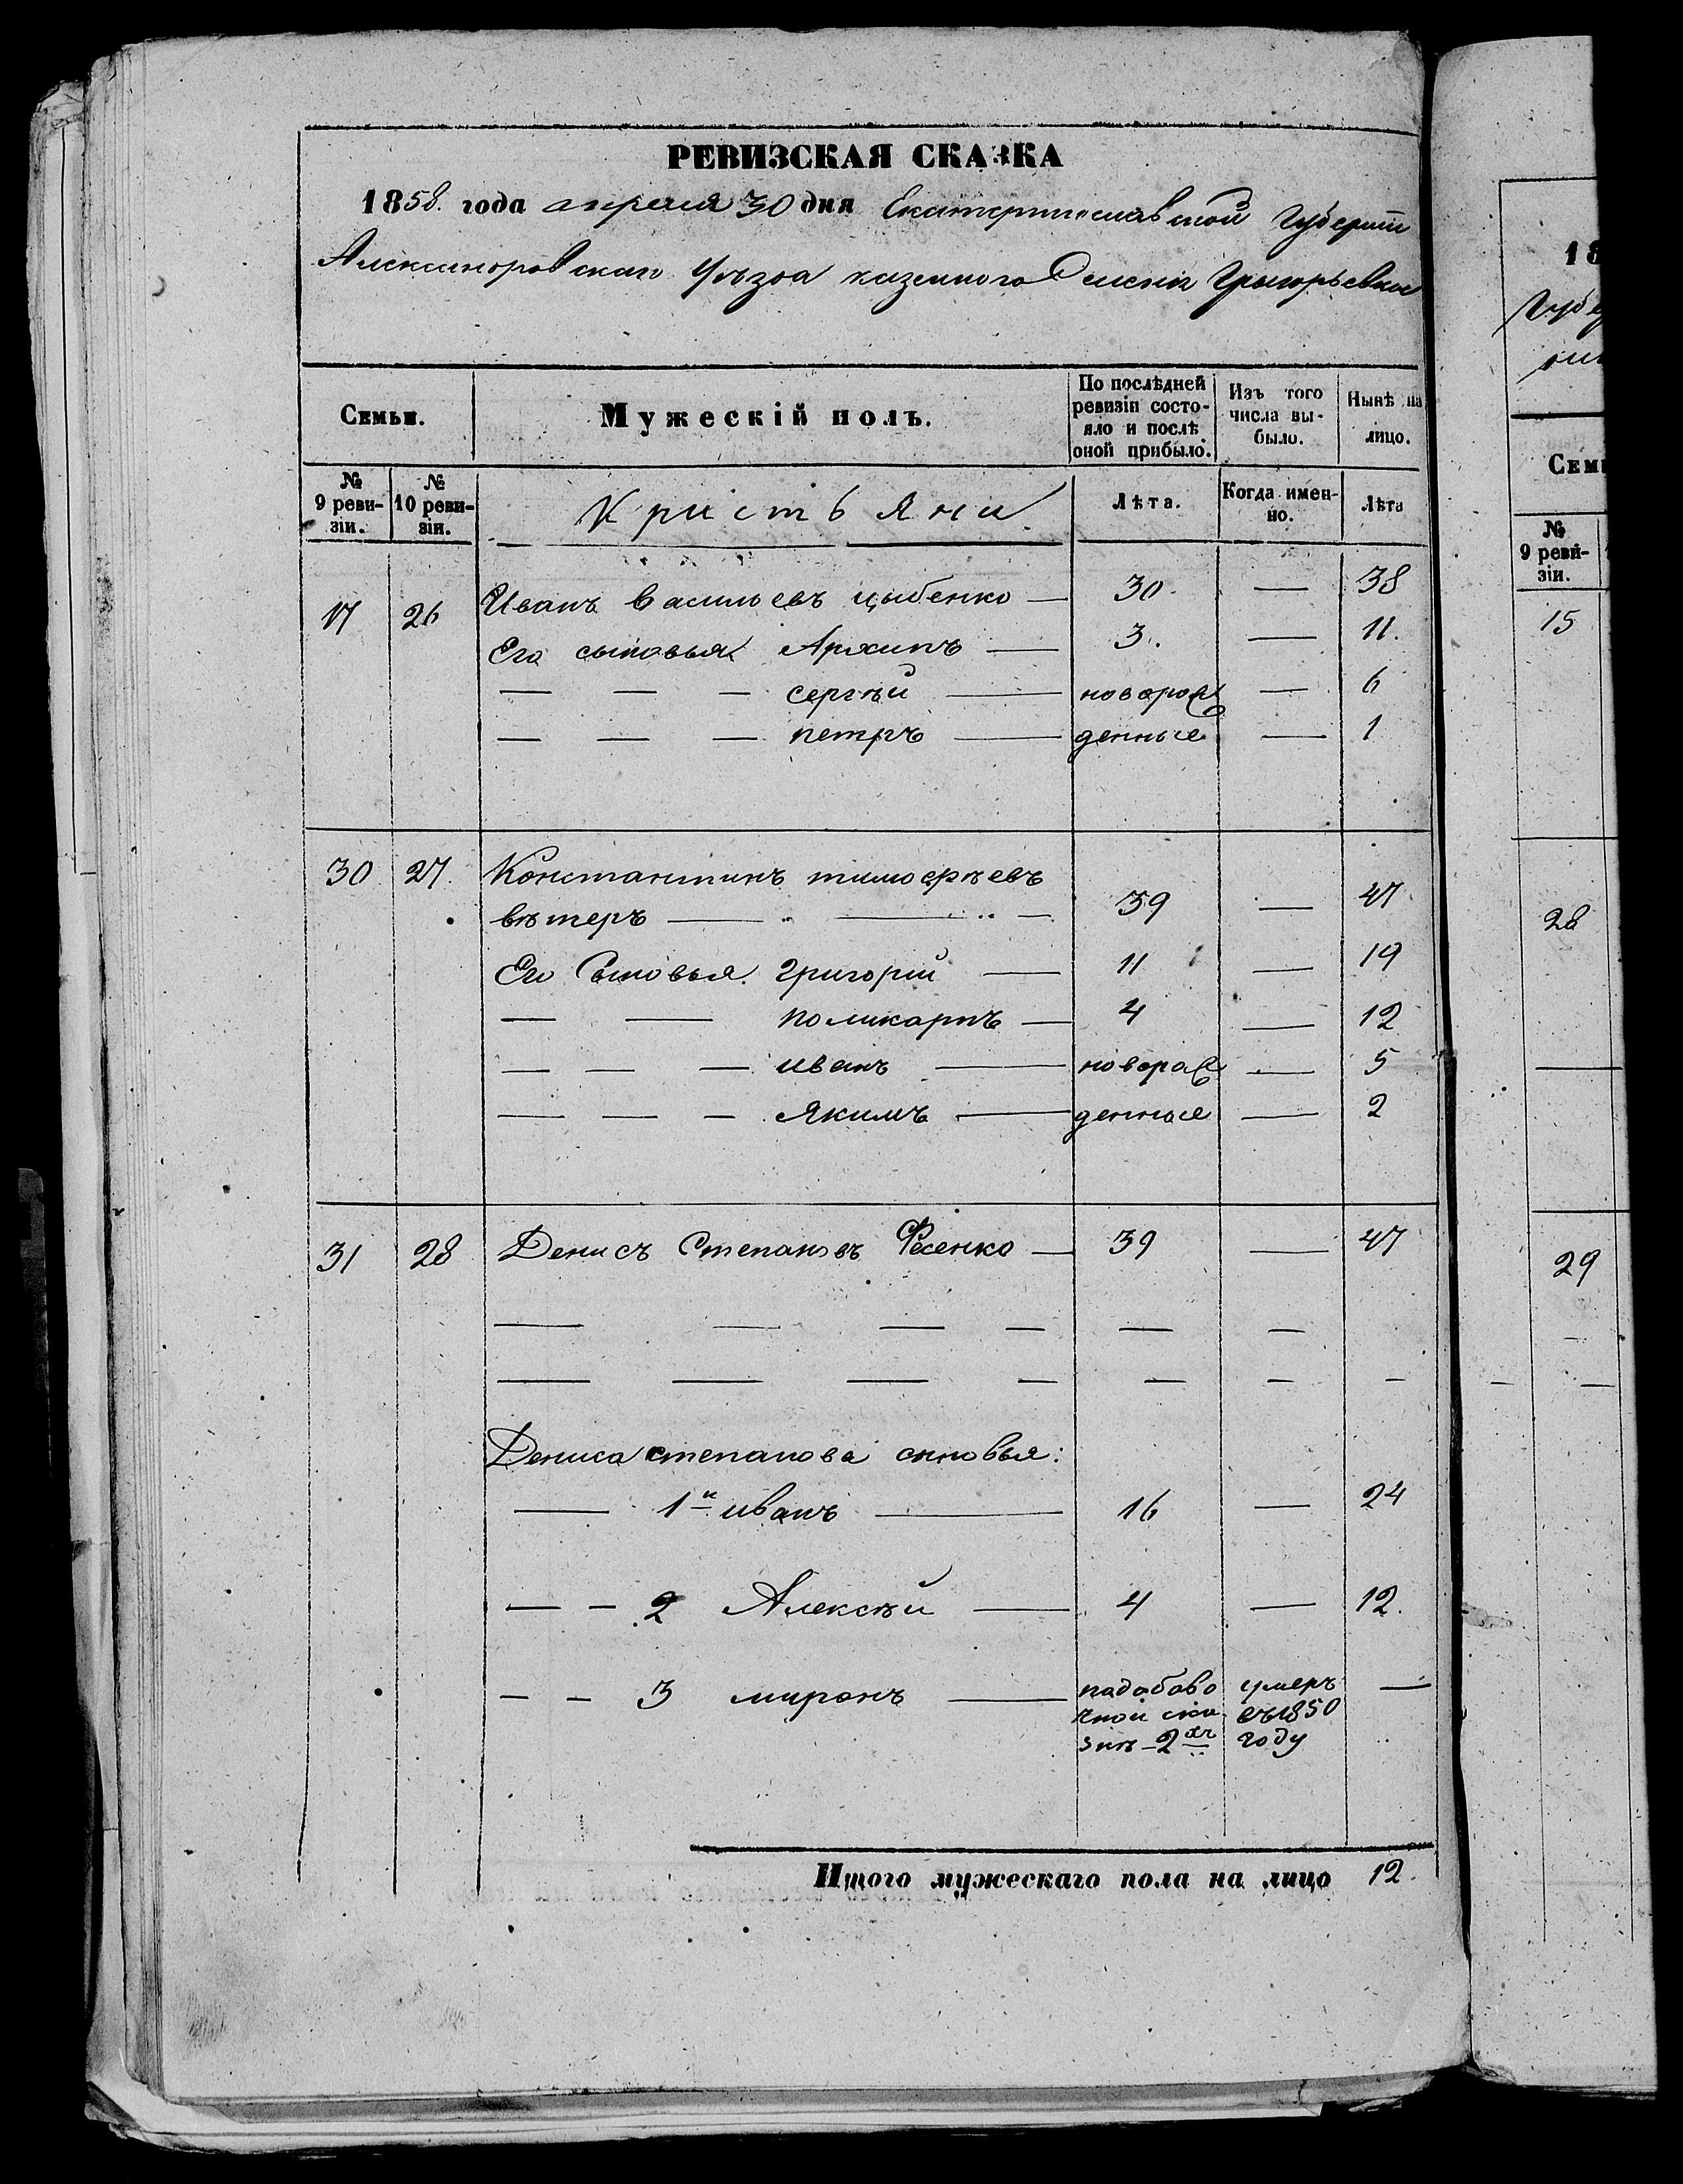 РЕВИЗСКАЯ СКАЗКА
1858. года апреля 30 дня Екатеринославской Губерніи
Александровскаго Уѣзда казенного Селенія Григорьевки
Семьи. Мужескій полъ. По послѣдней ревизіи состояло и послѣ оной прибыло. Изъ того числа выбыло. Нынѣ на лицо.
№ 9 ревизіи. № 10 ревизіи. Кристьяни. Лѣта. Когда именно. Лѣта
17 26 Иванъ васильевъ цыбенко — 30. — 38
Его сыновья Архипъ — 3. — 11.
— — — сергѣй — новорож — 6
— — — петръ — денные — 1
30 27. Константинъ тимофѣевъ
вѣтеръ — — — 39 — 47
Его Сыновья. Григорій — 11 — 19
— — поликарпъ — 4 — 12
— — — иванъ — новорож — 5
— — — Якимъ — денные — 2
31 28 Денисъ Степановъ Фесенко — 39 — 47
— — — — — —
— — — — — — —
Дениса степанова сыновья:
— 1й иванъ — 16 — 24
— — 2 Алексѣй — 4 — 12.
— — 3 миронъ — падобаво умеръ —
чной ска въ 1850
зкѣ - 2хъ году
Итого мужескаго пола на лицо 12.
18
Губе
Семь
№ 9 ревизіи.
15
28
29